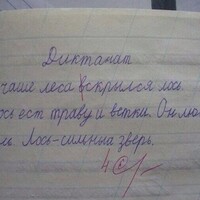 Диктант
чаще леса скрылся лось
ось ест траву и ветки. Он лю
ль. Лось-сильный зверь.
4